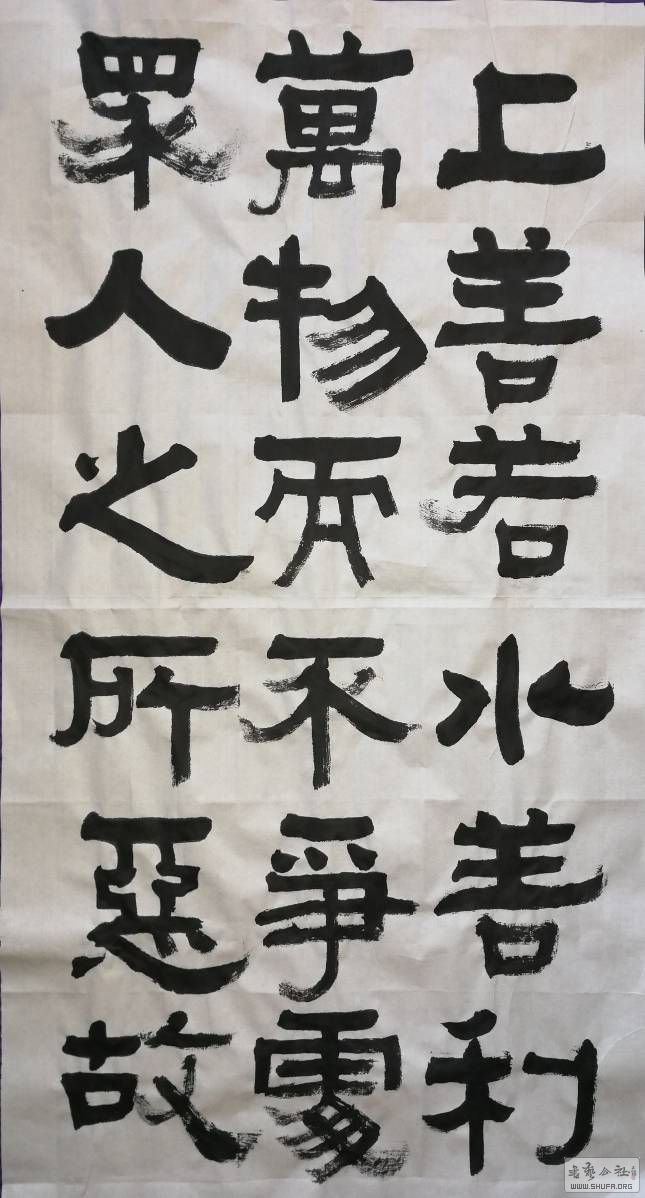 上善若水善利
萬物而不爭處
眾人之所惡故
WWW.SHUFA.ORG